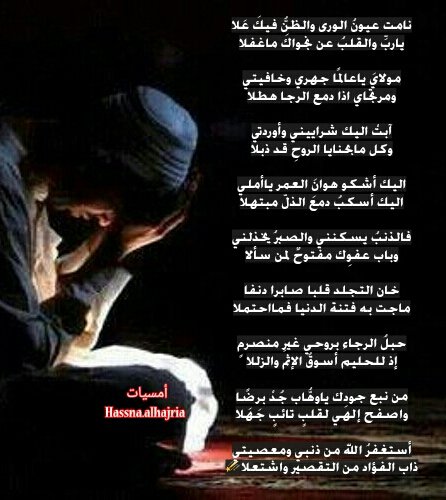 نامت عيونُ الورى والظنُّ فيكَ عَلا
ياربِّ والقلبُ عن نجواكَ ماغفلا
مولايَ ياعالمًا جهري وخافيتي
ومرتجاي اذا دمع الرجا هطلا
آبتُ اليك شراييني وأوردتي
وكل مابحنايا الروحِ قد ذبلا
اليك أشكو هوانَ العمر ياأملي
اليك أسكبُ دمعَ الذلّ مبتهلا
فالذنبُ يسكنني والصبرُ يخذلني
وباب عفوِك مفتوحٌ لمن سألا
خان التجلد قلبا صابرا دنفا
ماجت به فتنة الدنيا فمااحتملا
حبلُ الرجاء بروحي غيرِ منصرمٍ
إذ للحليم أسوقُ الإثم والزللا
من نبع جودك ياوهَّاب جُدْ برضًا
واصفح إلهي لقلبٍ تائبٍ جَهَلا
أستغفرُ اللّه من ذنبي ومعصيتي
ذاب الفؤاد من التقصير واشتعلا
أمسيات
Hassna.alhajria